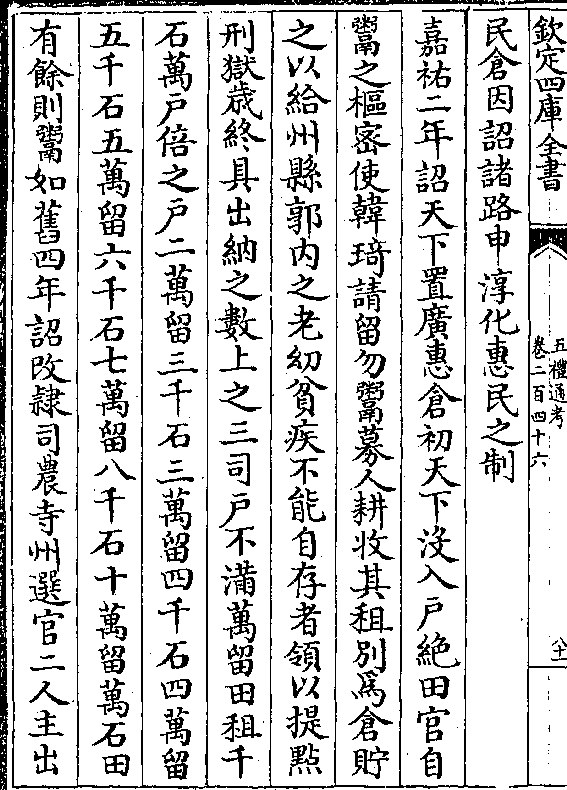 欽定四庫全書
五禮通考
卷二百四十六
八十一
民倉因詔諸路申淳化惠民之制
嘉祐二年詔天下置廣惠倉初天下沒入戶絶田官自
鬻之樞密使韓琦請留勿鬻募人耕收其租別爲倉貯
之以給州縣郭内之老幼貧疾不能自存者領以提點
刑獄歲終具出納之數上之三司戶不滿萬留田租千
石萬戶倍之戶二萬留三千石三萬留四千石四萬留
五千石五萬留六千石七萬留八千石十萬留萬石田
有餘則鬻如舊四年詔改隸司農寺州選官二人主出